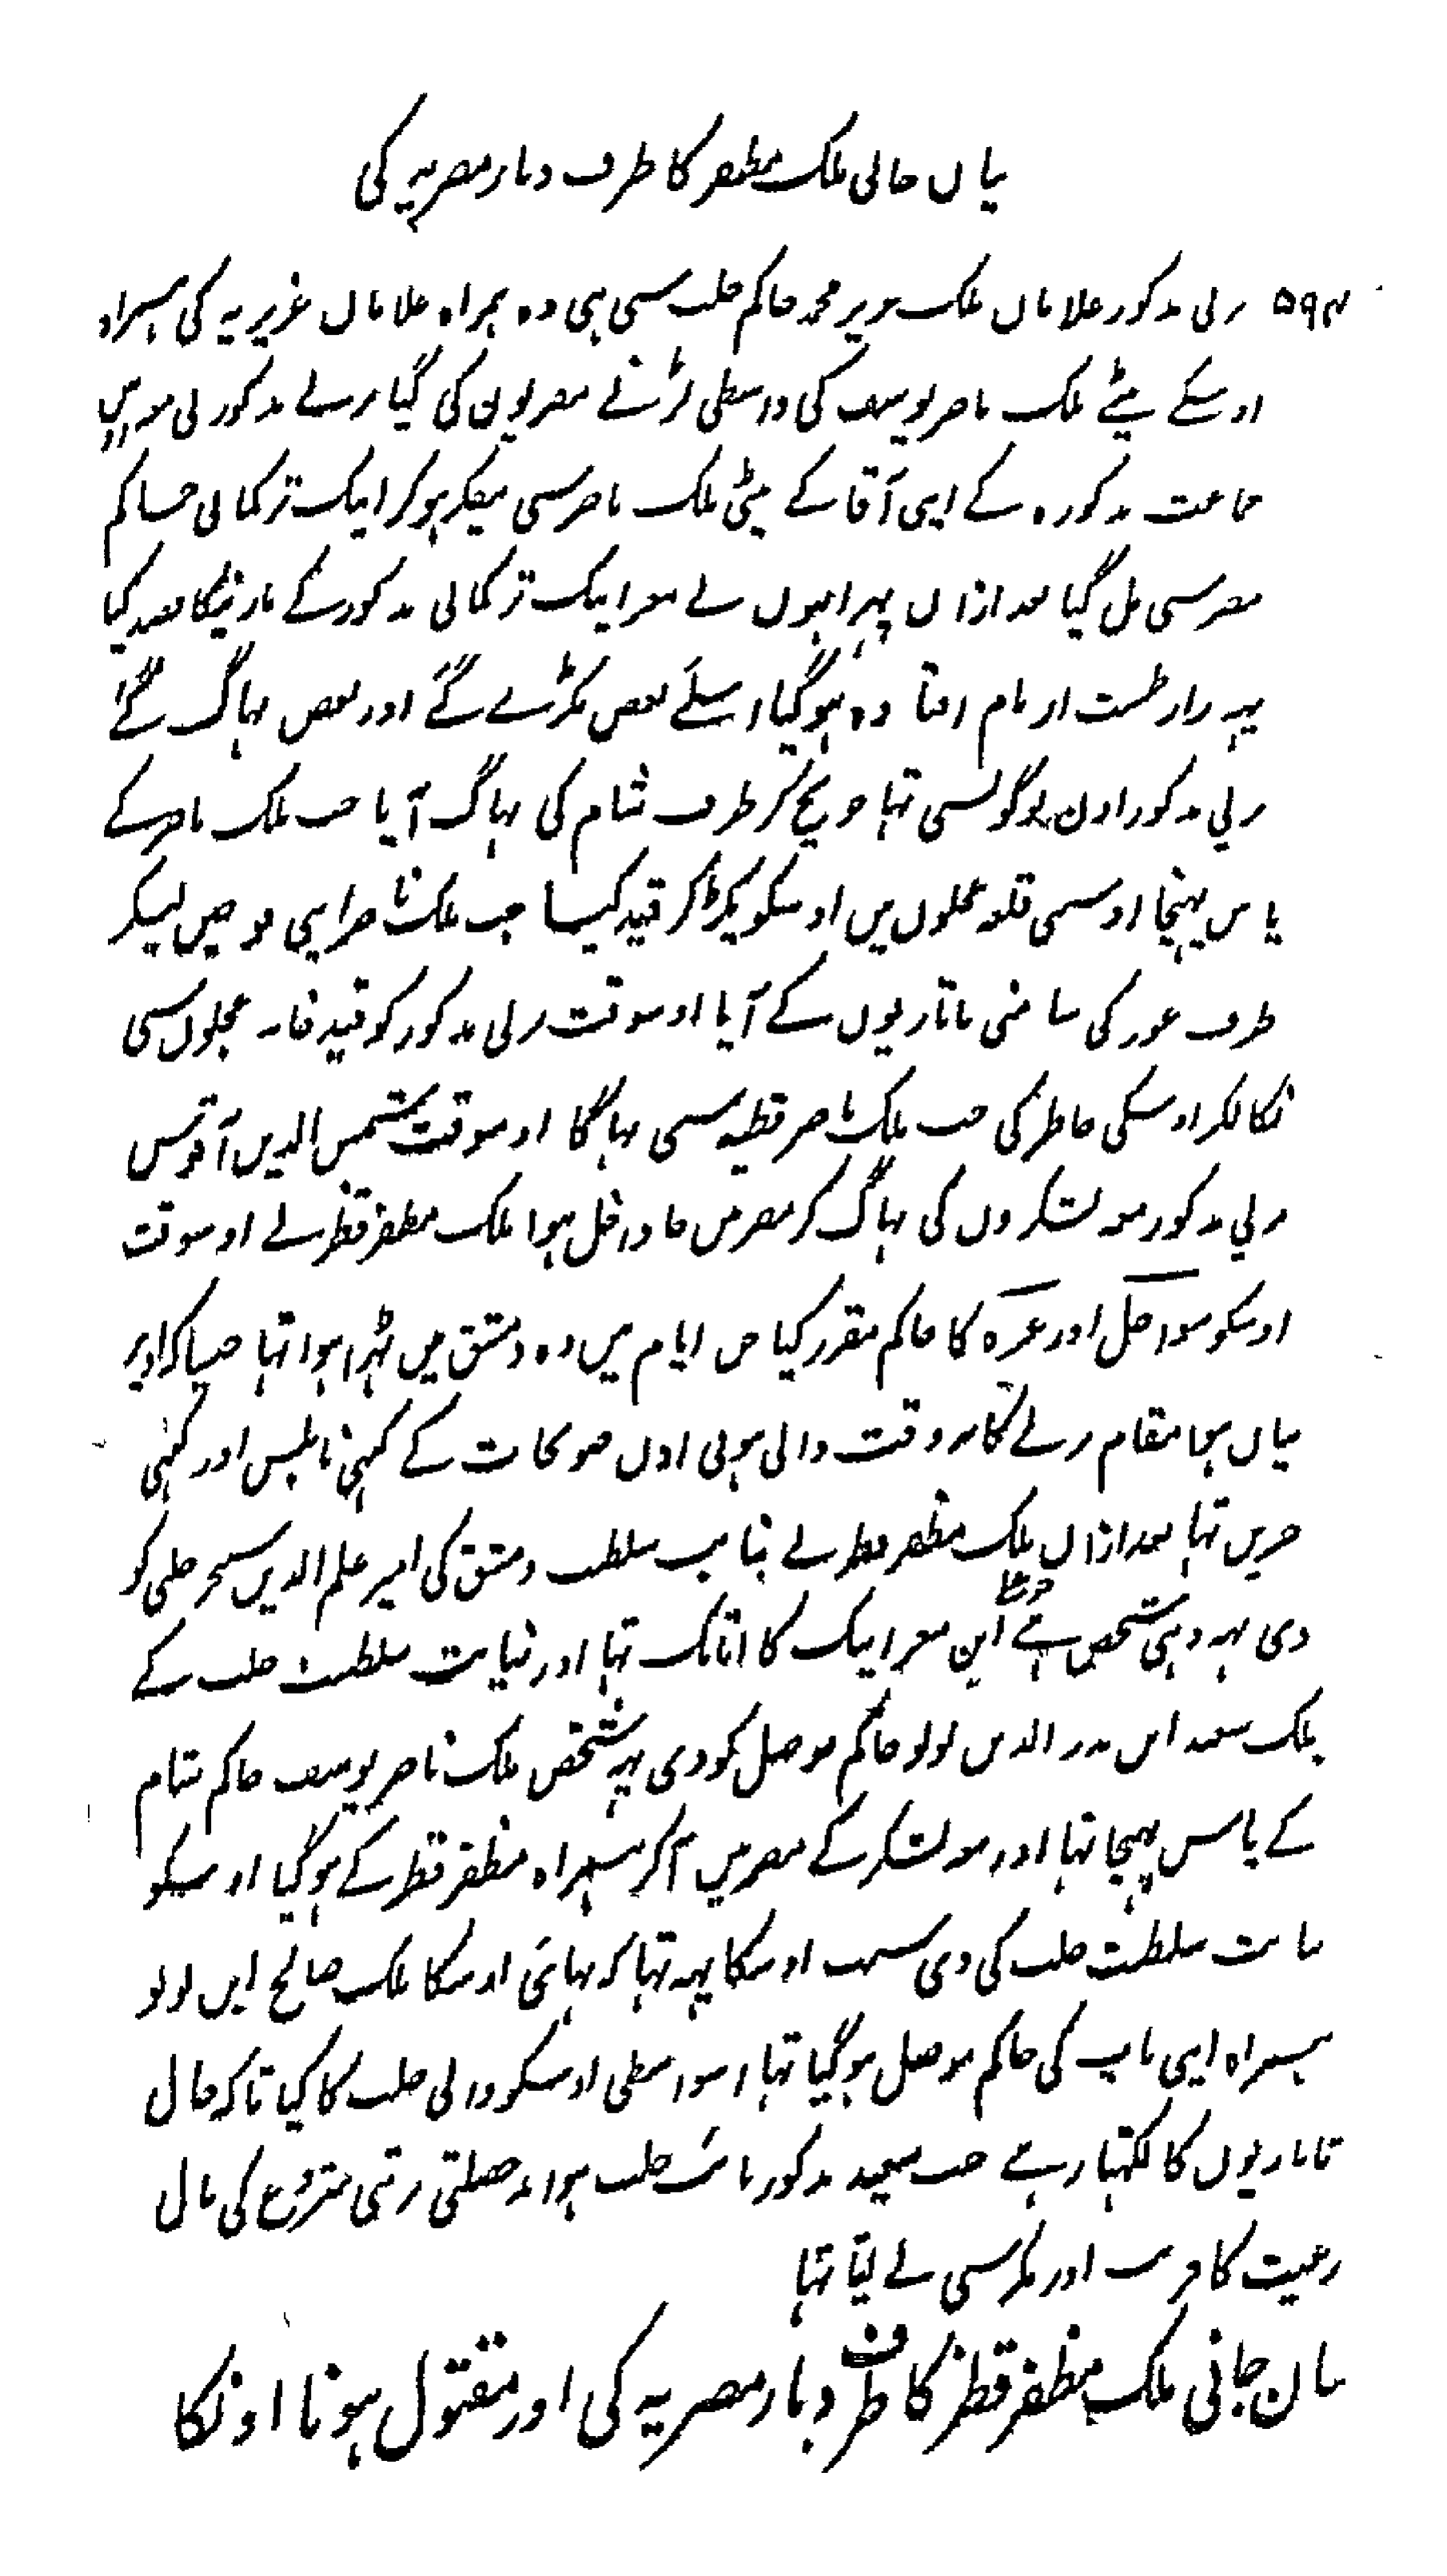 بیان جانی ملک مظفر کا طرف دیار مصریہ کی
۵۹۴ برلی مذکور غلامان ملک عزیز محمد حاکم حلب سی ہی وہ ہمراہ غلامان عزیزیہ کی ہمراہ
اوسکے بیٹے ملک ناصر یوسف کی واسطی لڑنے مصریون کی گیا برلے مذکور نی معہ
جماعت مذکورہ کے اپنی آقا کے بیٹی ملک ناصر سی ہوکر ایبک ترکمانی حاکم
مصر سی مل گیا بعد ازاں پہر انہوں نے معز ایبک ترکمانی مذکور کے مارنیکا قصد کیا
یہہ راز طشت از بام افتادہ ہوگیا اسلئے بعض پکڑے گے اور بعض بہاگ گے
برلی مذکور اون لوگو نسی تہا جو بچ کر طرف شام کی بہاگ آیا جب ملک ناصر کے
پاس پہنچا اوسی قلعہ عجلوں میں اوسکو پکڑ کر قید کیا جب ملک ناصر اپنی فوجیں لیکر
طرف غور کی سامنی تاتاریوں کے آیا اوسوقت برلی مذکور کو قید خانہ عجلوں سی
نکالکر اوسکی خاطر کی جب ملک ناصر قطیہ سی بہاگا اوسوقت شمس الدین آقوش
برلی مذکور معہ لشکروں کی بہاگ کر مصر میں جا داخل ہوا ملک مظفر قطز نے اوسوقت
اوسکو سواحل اور غزہ کا حاکم مقرر کیا جن ایام میں وہ دمشق میں ٹہرا ہوا تہا جیسا کہ اوپر
بیان ہوا مقام برلے کا بروقت والی ہونی اون صوبجات کے کبہی نابلس اور کبہی
جنین تہا بعد ازاں ملک مظفر قطز نے نیابت سلطنت دمشق کی امیر علم الدین سنجر حلبی کو
دی یہہ وہی شخص ہے جو علی ابن معز ایبک کا اتابک تہا اور نیابت سلطنت حلب کے
ملک سعید ابن بدر الدین لولو حاکم موصل کو دی یہہ شخص ملک ناصر یوسف حاکم شام
کے پاس پہنچا تہا اور معہ لشکر کے مصر میں آکر ہمراہ مظفر قطز کے ہوگیا اوسکو
نیابت سلطنت حلب کی دی سبب اوسکا یہہ تہا کہ بہائی اوسکا ملک صالح ابن لولو
ہمراہ اپنی باپ کی حاکم موصل ہوگیا تہا اسواسطی اوسکو والی حلب کا کیا تاکہ حال
تاتاریوں کا لکہتا رہے جب سعید مذکور نائب حلب ہوا بدخصلتی برتنی شروع کی مال
رعیت کا فریب اور مکر سی لے لیتا تہا
بیان جانی ملک مظفر قطز کا طرف دیار مصریہ کی اور مقتول ہونا اونکا